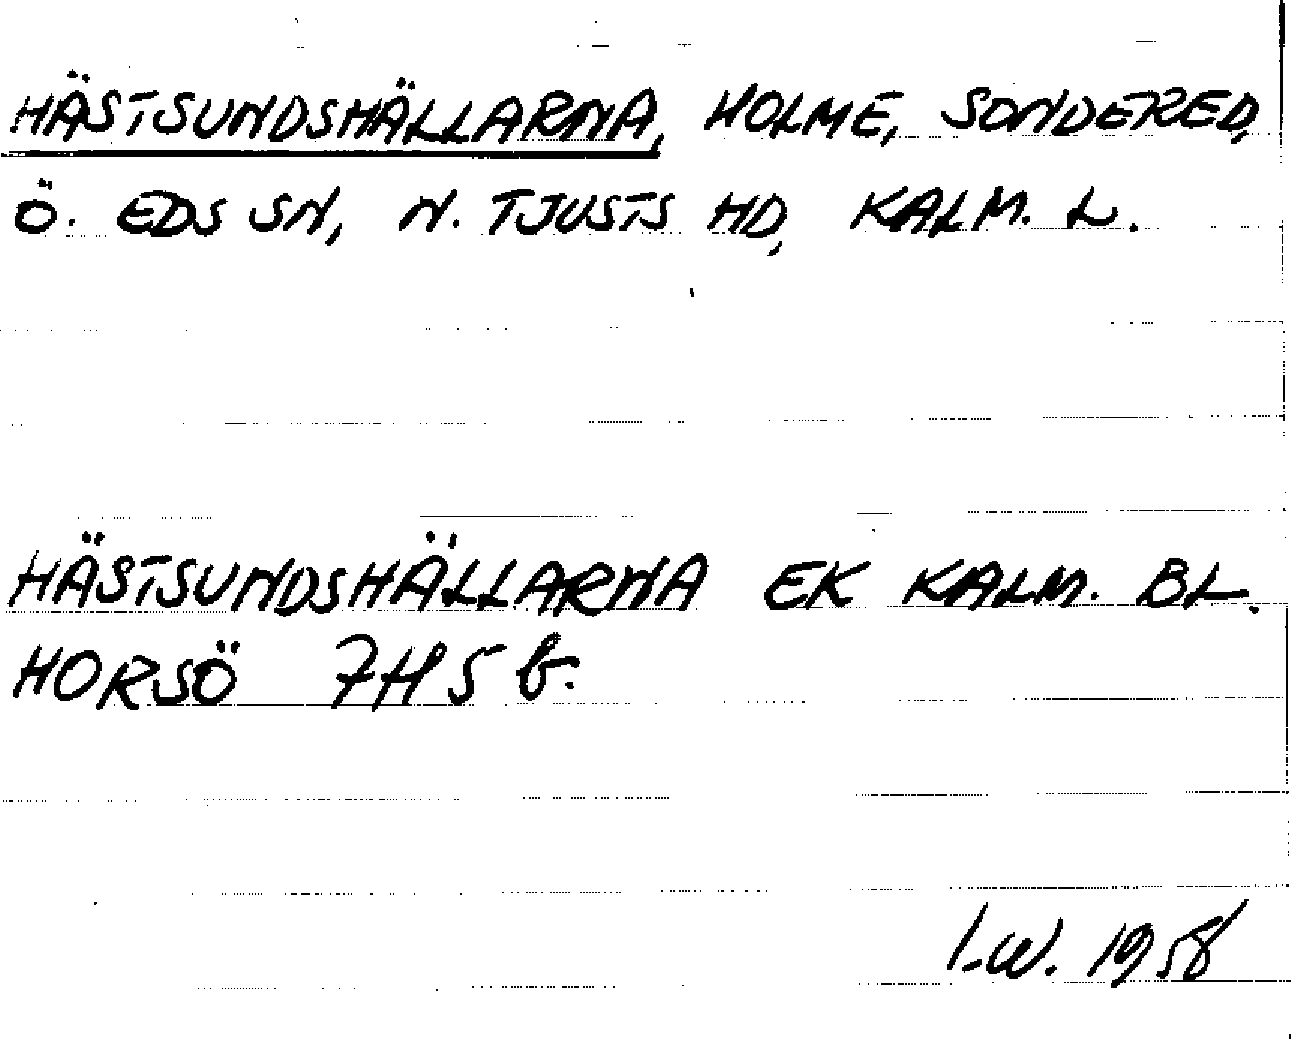 HÄSTSUNDSHÄLLARNA, HOLME, SONDERED,
Ö. EDS SN, N. TJUSTS HD, KALM. L.
HÄSTSUNDSHÄLLARNA EK KALM. BL.
HORSÖ 7H5 b.
I.W. 1958